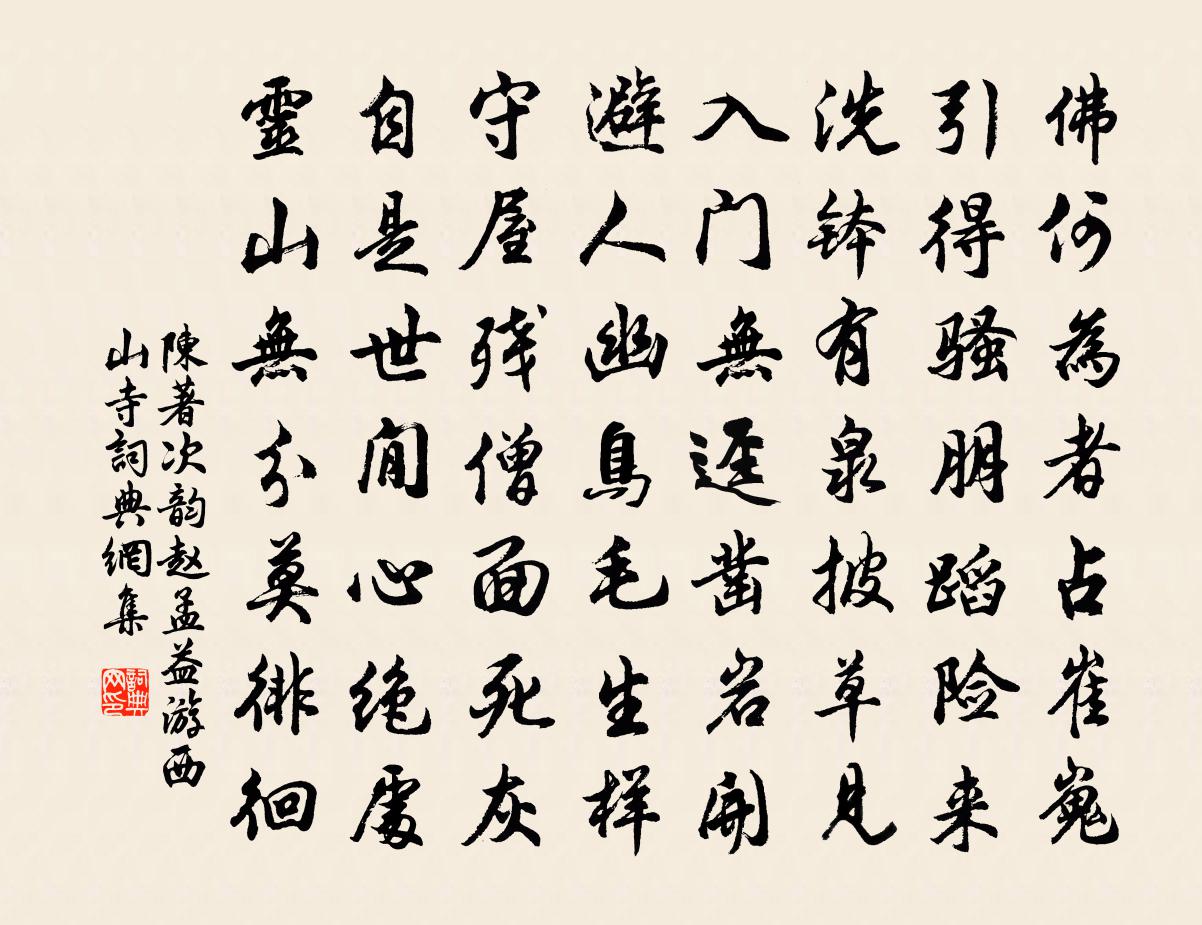 佛何為者占崔嵬
引得骚朋蹈险来
洗钵有泉披草見
入门無迳凿岩開
避人幽鳥毛生样
守屋残僧面死灰
自是世間心绝處
靈山無分莫徘徊
陳著次韵赵孟益游西
山寺詞典網集
詞典
网印